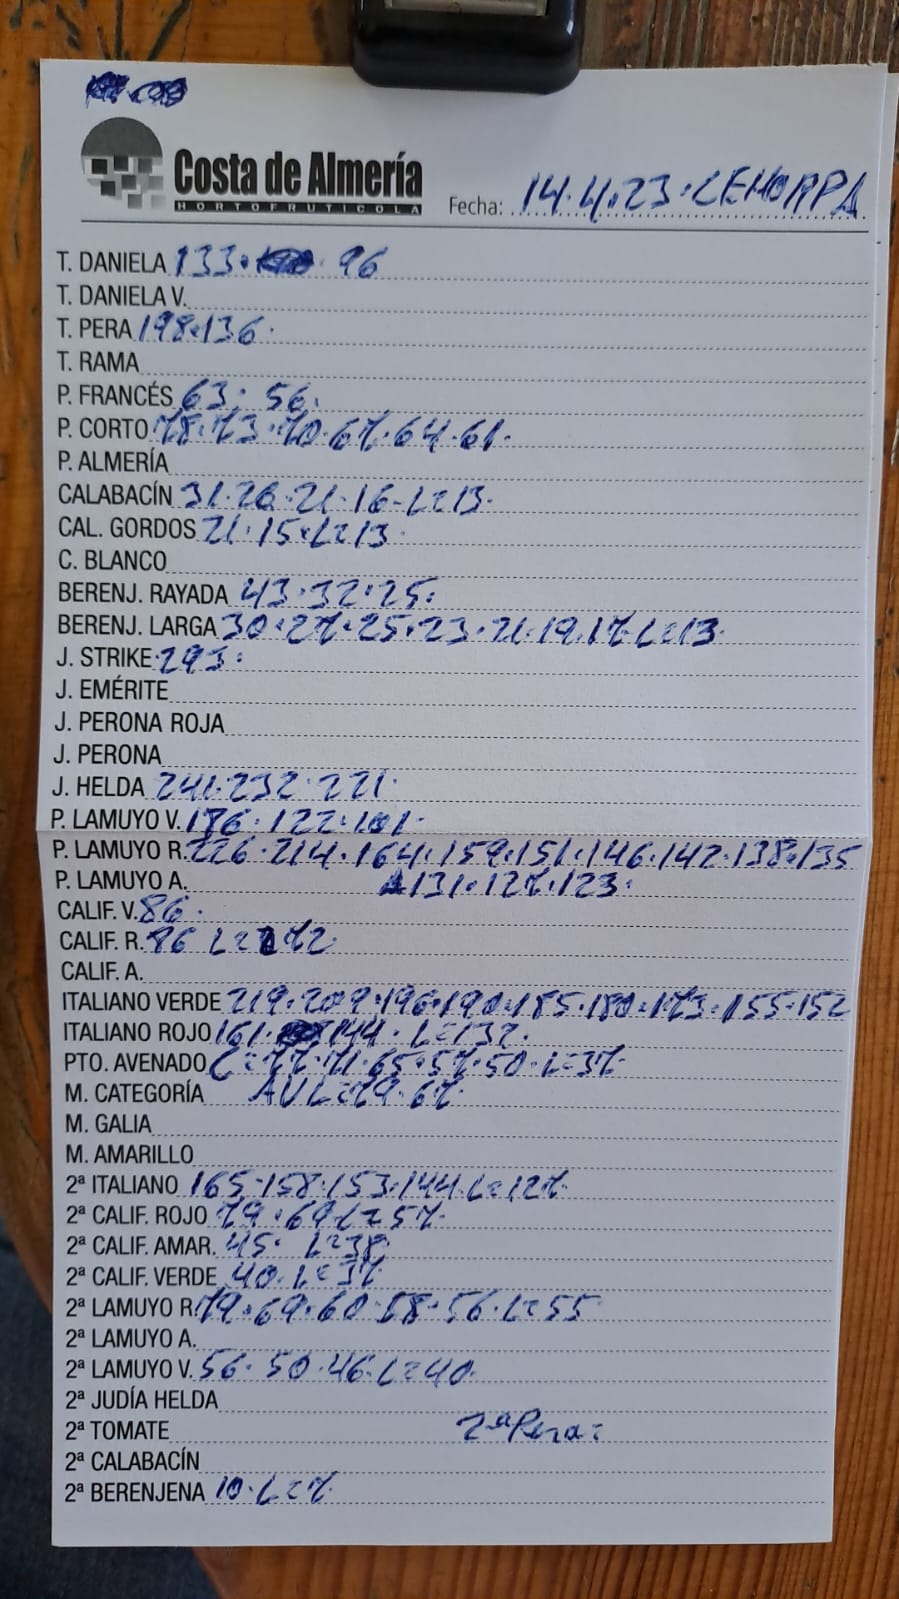 Costa de Almería
HORTOFRUTICOLA
Fecha: 14.4.23. CEHORPA
T. DANIELA 133. 96
T. DANIELA V.
T. PERA 198.136.
T. RAMA
P. FRANCÉS 63. 56.
P. CORTO 78.73.70.67.64.61.
P. ALMERÍA
CALABACÍN 31.26.21.16-L=13.
CAL. GORDOS 21.15.L=13.
C. BLANCO
BERENJ. RAYADA 43.32.25.
BERENJ. LARGA 30.27.25.23.21.19.17.L=13.
J. STRIKE 293.
J. EMÉRITE
J. PERONA ROJA
J. PERONA
J. HELDA 241.232.221.
P. LAMUYO V. 186.122.101.
P. LAMUYO R. 226.214.164.159.151.146.142.138.135
P. LAMUYO A. 131.127.123.
CALIF. V. 86.
CALIF. R. 86 L= 72
CALIF. A.
ITALIANO VERDE 219.209.196.190.185.180.173.155.152
ITALIANO ROJO 161. 144. L=132.
PTO. AVENADO C=77.71.65.57.50.L=37.
M. CATEGORÍA AV L=79.67.
M. GALIA
M. AMARILLO
2ª ITALIANO 165.158.153.144.L=127.
2ª CALIF. ROJO 79.69 L=57.
2ª CALIF. AMAR. 45. L=38.
2ª CALIF. VERDE 40.L=37
2ª LAMUYO R. 79.69.60.58.56.L=55
2ª LAMUYO A.
2ª LAMUYO V. 56.50.46.L=40.
2ª JUDÍA HELDA
2ª TOMATE 2ª Pera=
2ª CALABACÍN
2ª BERENJENA 10.L=7.